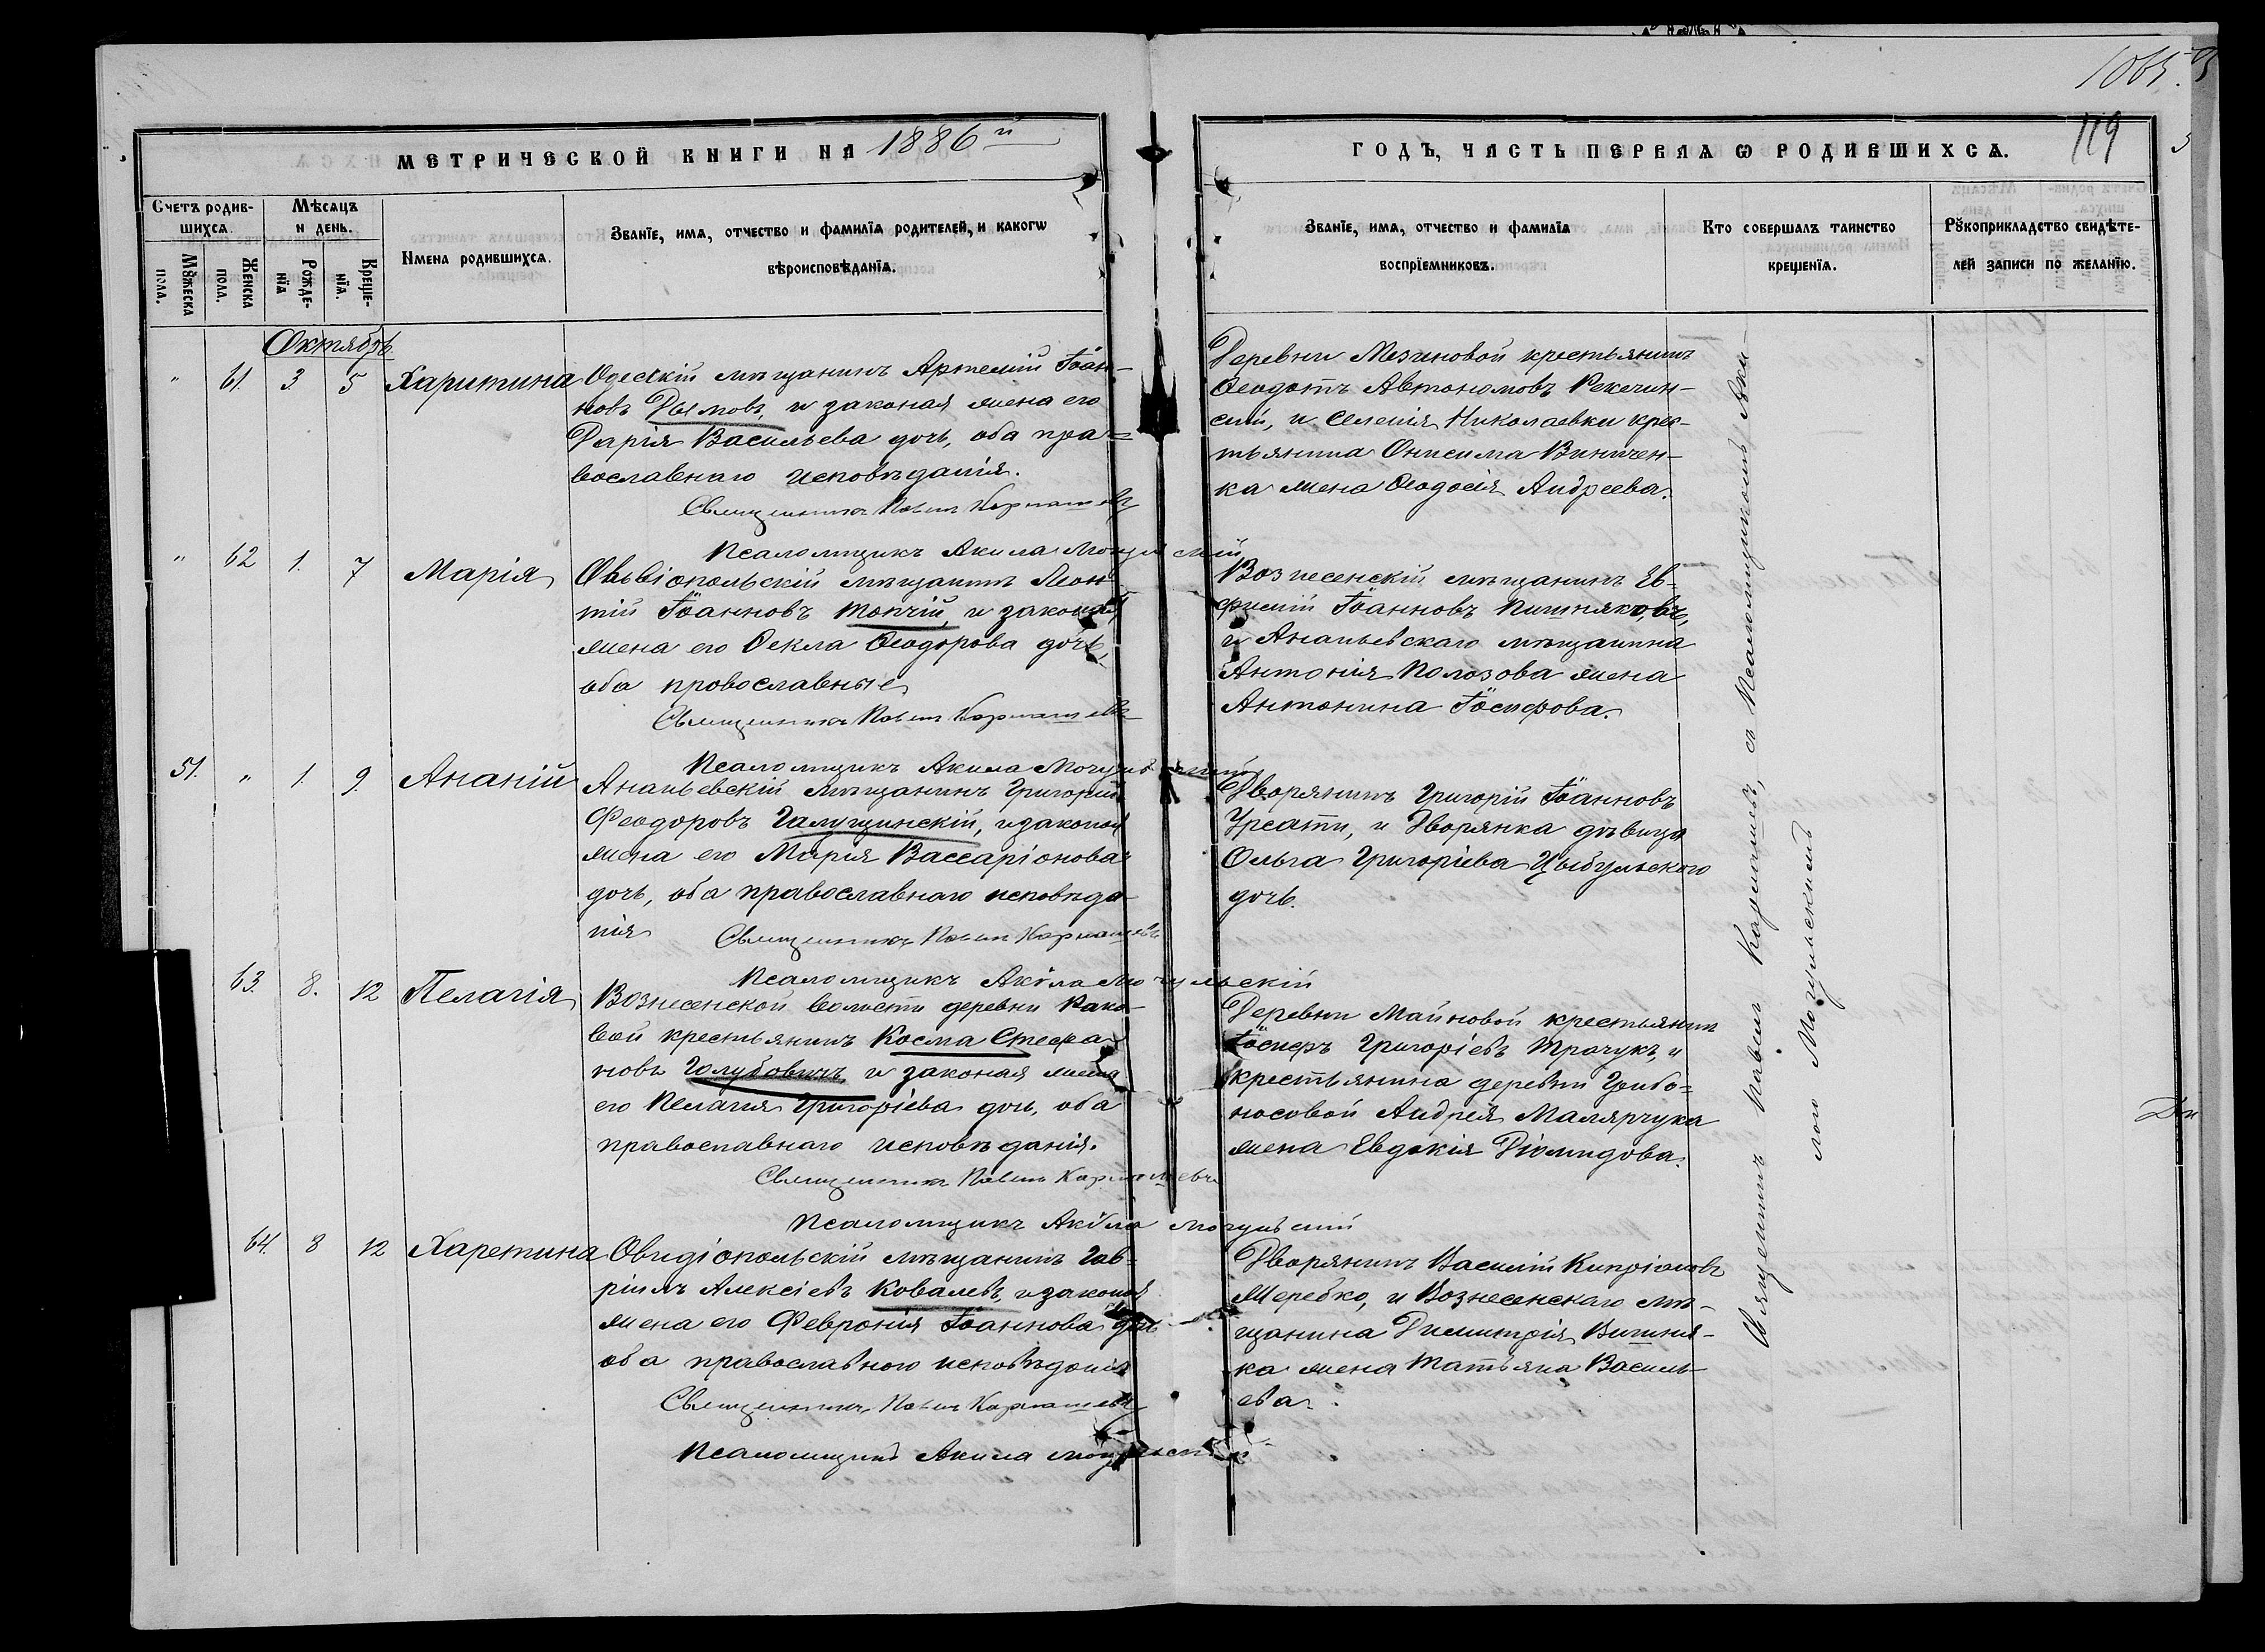 1065.
119
МЕТРИЧЕСКОЙ КНИГИ НА 1886й
ГОДЪ, ЧАСТЬ ПЕРВАѦ Ѡ РОДИВШИХСѦ.
Счетъ родив-
шихсѧ.
Мѣсѧцъ
и день.
Мꙋжеска
пола.
Женска
пола.
Рожде-
нїѧ
Креще-
нїѧ.
Имена родившихсѧ.
Званїе, имѧ, отчество и фамилїѧ родителей, и какогѡ
вѣроисповѣданїѧ.
Званїе, имѧ, отчество и фамилїѧ
воспрїемниковъ.
Кто совершалъ таинство
крещенїѧ.
Рꙋкоприкладство свидѣте-
лей записи по желанїю.
Октябрь
" 61. 3. 5 Харитина
Одескій мѣщанинъ Артемій Іоан-
новъ Дымовъ, и законая жена его
Дарія Васильева дочь, оба пра-
вославнаго исповѣданія.
Священникъ Павелъ Карташевъ
Псаломщикъ Акила Могульскій
Деревни Мезиновой крестьянинъ
Ѳеодотъ Автономовъ
и селенія Николаевки крес-
тьянина Онисима Виничен-
ка жена Ѳеодосія Андреева.
" 62 1. 7 Марія
Овьвіопольскій мѣщанинъ Леон-
тій Іоанновъ Топчій, и законая
жена его Ѳекла Ѳеодорова дочь,
оба провославные
Священникъ Павелъ Карташевъ
Псаломщикъ Акила Могульскій
Вознесенскій мѣщанинъ Ев-
фимій Іоанновъ Пишняковъ,
и Ананьевскаго мѣщанина
Антонія Полозова жена
Антонина Іосифова.
51. " 1. 9. Ананій
Ананьевскій мѣщанинъ Григорій
Феодоровъ Галущинскій, и законая
жена его Марія Вассаріонова
дочь, оба православнаго исповѣда-
нія
Священникъ Павелъ Карташевъ
Псаломщикъ Акила Могульскій
Дворянинъ Григорій Іоанновъ
и Дворянка дѣвица
Ольга Григоріева Цыбульского
дочь.
63. 8. 12 Пелагія
Вознесенской волости деревни Рако-
вой крестьянинъ Косма Стефа-
новъ Голубовичъ, и законая жена
его Пелагія Григоріева дочь, оба
православнаго исповѣданія.
Священникъ Павелъ Карташевъ
Псаломщикъ Акила Могульскій
Деревни Майновой крестьянин
Іосифъ Григоріевъ Трачукъ, и
крестьянина деревни Грибо-
носовой Андрея Малярчука
жена Евдокія Діомидова.
64. 8 12 Харетина
Овидіопольскій мѣщанинъ Гав-
ріилъ Алексіевъ Ковалевъ, и законая
жена его Феврония Іоаннова дочь
оба православного исповѣдонія
Священникъ Павелъ Карташевъ
Псаломщикъ Акила Могульскій
Дворянинъ Василій Кипріановъ
Жеребко, и Вознесенскаго мѣ-
щанина Димитрія Вишня-
ка жена Татьяна Василь-
ева.
Священникъ Павелъ Карташевъ, съ Псаломщикомъ Аки-
лою Могульскимъ